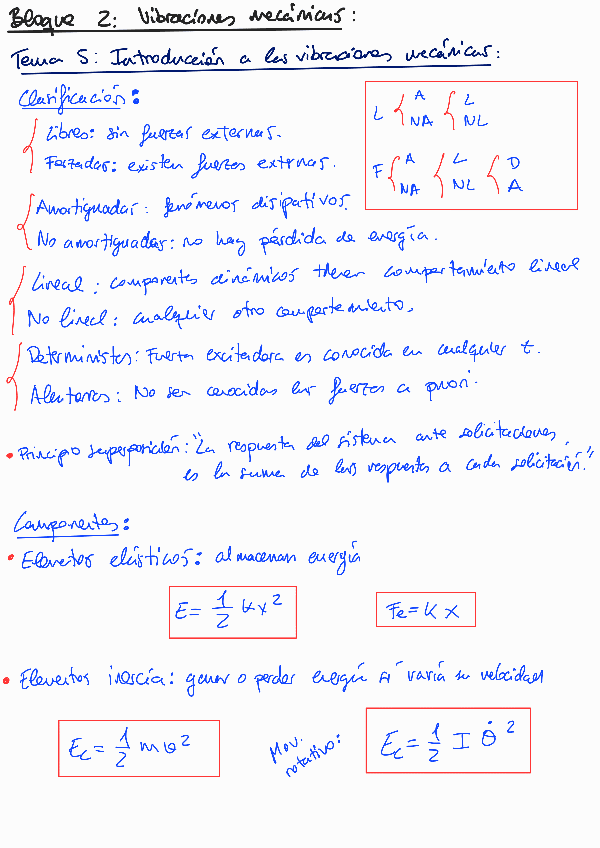 Bloque 2: Vibraciones mecánicas:
Tema 5: Introducción a las vibraciones mecánicas:
Clasificación:
L { A NA { L NL
F { A NA { L NL { D A
Libres: sin fuerzas externas.
Forzadas: existen fuerzas externas.
Amortiguadas: fenómenos disipativos.
No amortiguadas: no hay pérdida de energía.
Lineal: componentes dinámicos tienen comportamiento lineal
No lineal: cualquier otro comportamiento.
Deterministas: Fuerza excitadora es conocida en cualquier t.
Aleatorias: No son conocidas las fuerzas a priori.
• Principio superposición: "La respuesta del sistema ante solicitaciones,
es la suma de las respuestas a cada solicitación."
Componentes:
• Elementos elásticos: almacenan energía
E = 1/2 k x²
Fe = k x
• Elementos inercia: ganar o perder energía si varía su velocidad
Ec = 1/2 m v²
Mov. rotativo:
Ec = 1/2 I θ̇²